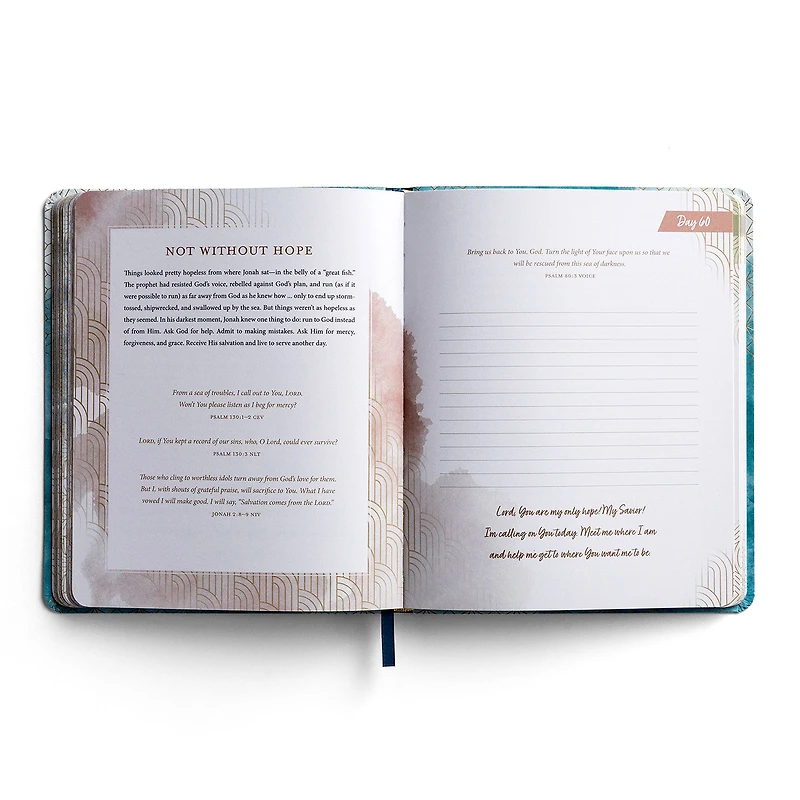 NOT WITHOUT HOPE
Things looked pretty hopeless from where Jonah sat—in the belly of a "great fish."
The prophet had resisted God's voice, rebelled against God's plan, and run (as if it
were possible to run) as far away from God as he knew how ... only to end up storm-
tossed, shipwrecked, and swallowed up by the sea. But things weren't as hopeless as
they seemed. In his darkest moment, Jonah knew one thing to do: run to God instead
of from Him. Ask God for help. Admit to making mistakes. Ask Him for mercy,
forgiveness, and grace. Receive His salvation and live to serve another day.
From a sea of troubles, I call out to You, LORD.
Won't You please listen as I beg for mercy?
PSALM 130:1–2 CEV
LORD, if You kept a record of our sins, who, O Lord, could ever survive?
PSALM 130:3 NLT
Those who cling to worthless idols turn away from God's love for them.
But I, with shouts of grateful praise, will sacrifice to You. What I have
vowed I will make good. I will say, "Salvation comes from the LORD."
JONAH 2:8–9 NIV
Day 60
Bring us back to You, God. Turn the light of Your face upon us so that we
will be rescued from this sea of darkness.
PSALM 80:3 VOICE
Lord, You are my only hope! My Savior!
I'm calling on You today. Meet me where I am
and help me get to where You want me to be.